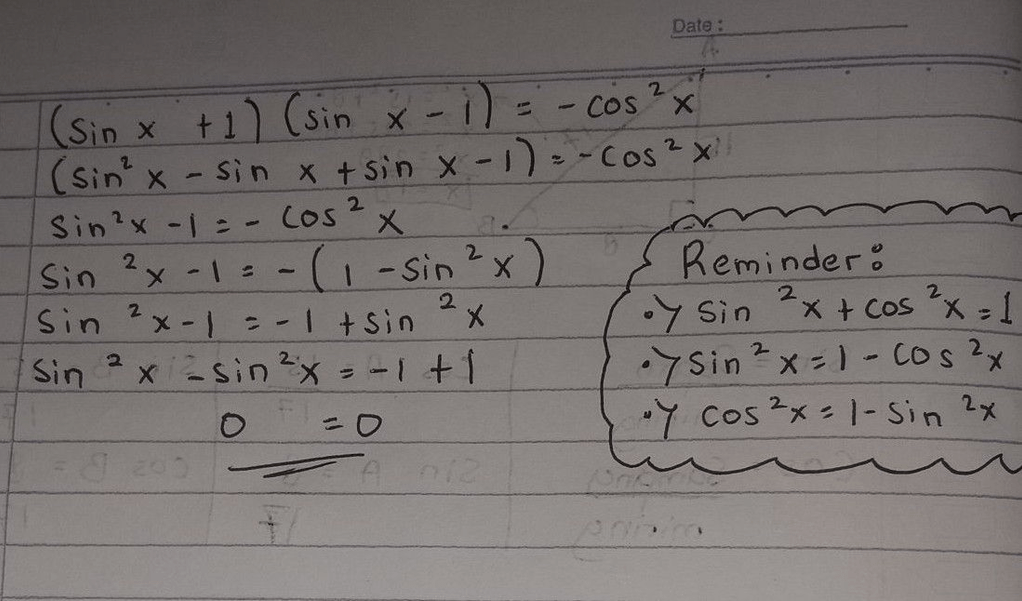 Date:
(Sin x +1) (sin x - 1) = - cos²x
(sin²x - sin x + sin x - 1) = - cos²x
Sin²x - 1 = - cos²x
Sin²x - 1 = - (1 - sin²x)
Sin²x - 1 = - 1 + sin²x
Sin²x - sin²x = - 1 + 1
0 = 0
Reminder:
Sin²x + cos²x = 1
Sin²x = 1 - cos²x
cos²x = 1 - Sin²x